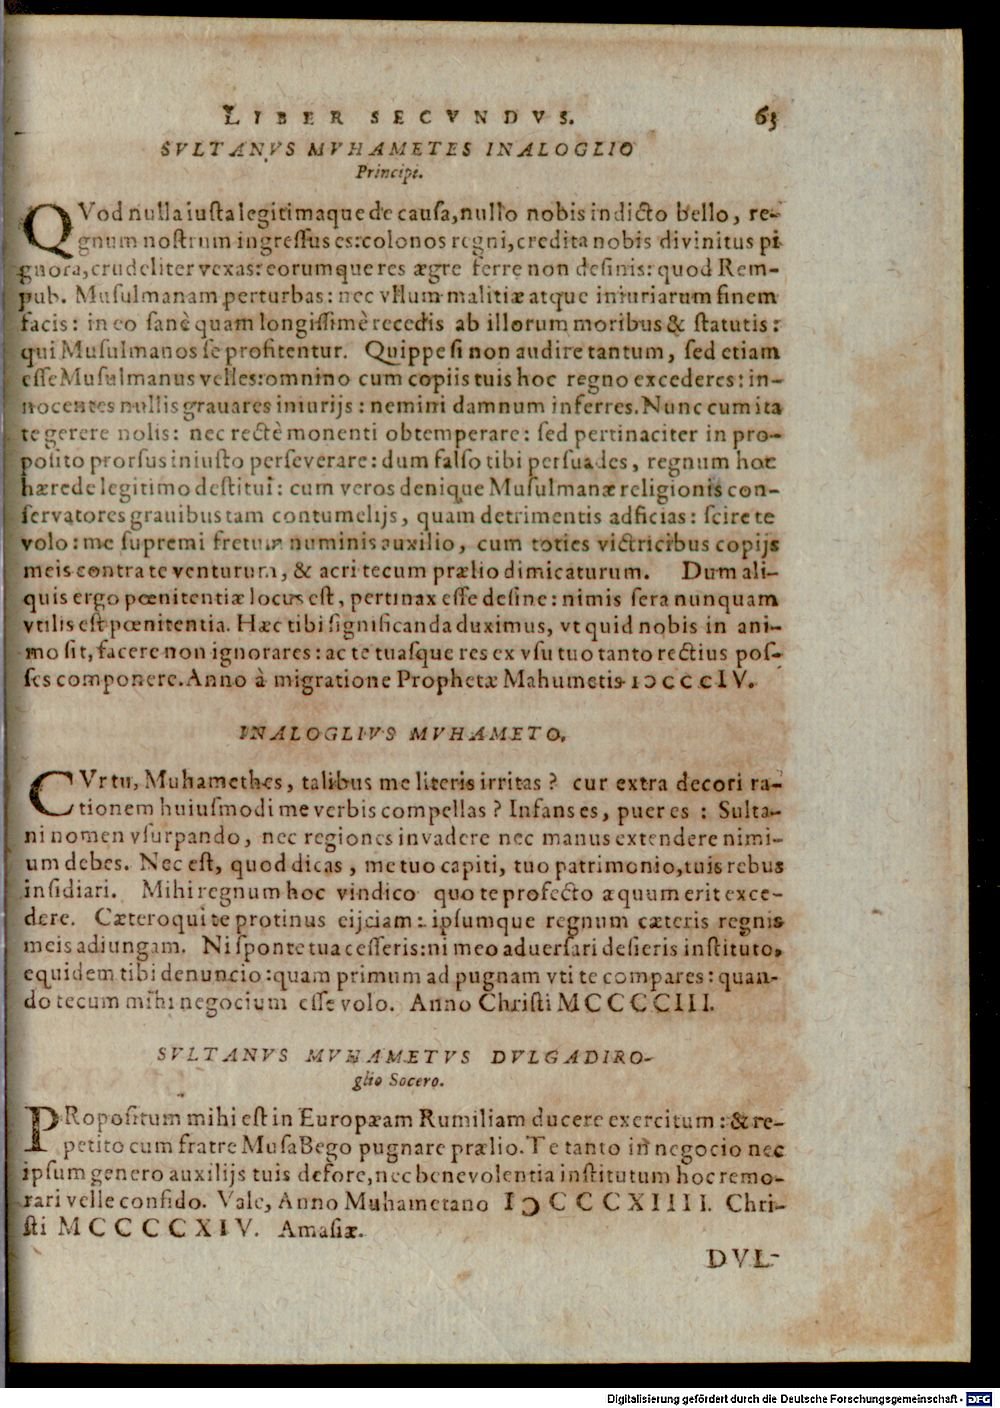 LIBER SECVNDVS. 63
SVLTANVS MVHAMETES INALOGLIO
Principi.
QVod nulla iusta legitimaque de causa, nullo nobis indicto bello, re-
gnum nostrum ingressus es: colonos regni, credita nobis divinitus pi
gnora, crudeliter vexas: eorumque res ægre ferre non desinis: quod Rem-
pub. Musulmanam perturbas: nec vllum malitiæ atque iniuriarum finem
facis: in eo sanè quam longissimè recedis ab illorum moribus & statutis:
qui Musulmanos se profitentur. Quippe si non audire tantum, sed etiam
esse Musulmanus velles: omnino cum copiis tuis hoc regno excederes: in-
nocentes nullis grauares iniurijs: nemini damnum inferres. Nunc cum ita
te gerere nolis: nec rectè monenti obtemperare: sed pertinaciter in pro-
posito prorsus iniusto perseverare: dum falso tibi persuades, regnum hoc
hærede legitimo destitui: cum veros denique Musulmanæ religionis con-
servatores grauibus tam contumelijs, quam detrimentis adficias: scire te
volo: me supremi fretum numinis auxilio, cum toties victricibus copijs
meis contra te venturum, & acri tecum prælio dimicaturum. Dum ali-
quis ergo pœnitentiæ locus est, pertinax esse desine: nimis sera nunquam
vtilis est pœnitentia. Hæc tibi significanda duximus, vt quid nobis in ani-
mo sit, facere non ignorares: ac te tuasque res ex vsu tuo tanto rectius pos-
ses componere. Anno à migratione Prophetæ Mahumetis IↃCCCCIV.
INALOGLIVS MVHAMETO.
CVr tu, Muhamethes, talibus me literis irritas? cur extra decori ra-
tionem huiusmodi me verbis compellas? Infans es, puer es: Sulta-
ni nomen vsurpando, nec regiones invadere nec manus extendere nimi-
um debes. Nec est, quod dicas, me tuo capiti, tuo patrimonio, tuis rebus
insidiari. Mihi regnum hoc vindico quo te profecto æquum erit exce-
dere. Cæteroqui te protinus eijciam: ipsumque regnum cæteris regnis
meis adiungam. Ni sponte tua cesseris: ni meo adversari desieris instituto,
equidem tibi denuncio: quam primum ad pugnam vti te compares: quan-
do tecum mihi negocium esse volo. Anno Christi MCCCCIII.
SVLTANVS MVHAMETVS DVLGADIRO-
glio Socero.
PRopositum mihi est in Europæam Rumiliam ducere exercitum: & re-
petito cum fratre Musa Bego pugnare prælio. Te tanto in negocio nec
ipsum genero auxilijs tuis defore, nec benevolentia institutum hoc remo-
rari velle confido. Vale, Anno Muhametano IↃCCCXIIII. Chri-
sti MCCCCXIV. Amasiæ.
DVL-
Digitalisierung gefördert durch die Deutsche Forschungsgemeinschaft - DFG